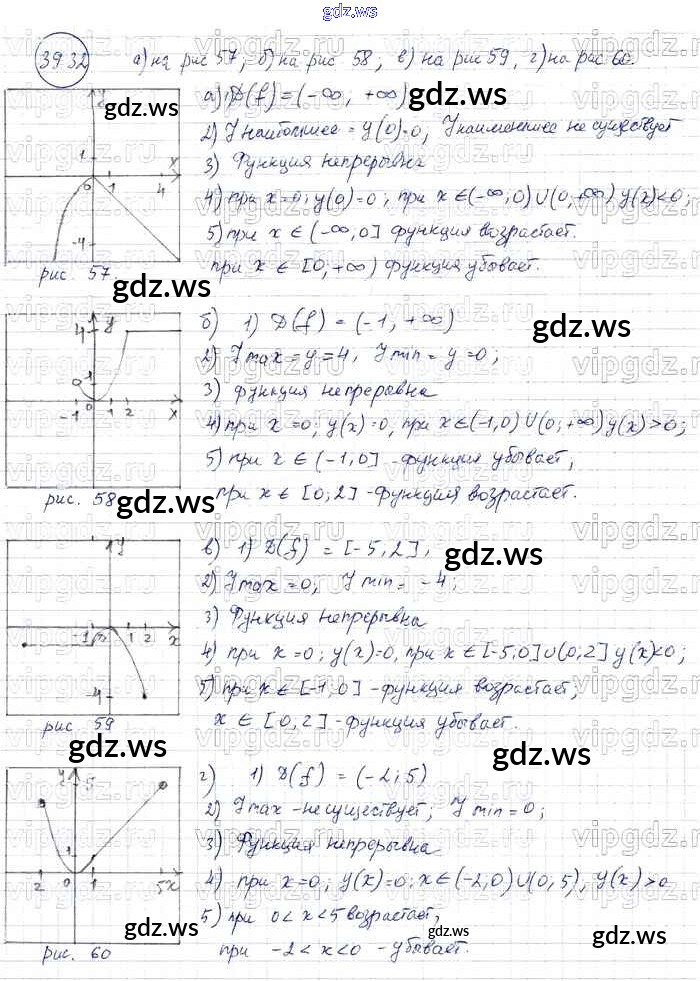 gdz.ws
39.32 а) на рис 57; б) на рис 58; в) на рис 59, г) на рис 60.
y
1
x
0 1 4
-4
рис. 57.
а) 1) D(f) = (-∞; +∞)
2) Yнаибольшее = y(0)=0, Yнаименьшее не существует
3) Функция непрерывна
4) при x=0; y(0)=0; при x∈(-∞,0)∪(0,+∞) y(x)<0;
5) при x ∈ (-∞,0] функция возрастает.
при x ∈ [0,+∞) функция убывает.
gdz.ws
gdz.ws
4 y
1
-1 0 1 2 x
рис. 58
б) 1) D(f) = (-1, +∞)
2) Ymax = y=4, Ymin = y=0;
3) функция непрерывна
4) при x=0, y(x)=0, при x∈(-1,0)∪(0;+∞) y(x)>0;
5) при x ∈ (-1,0] - функция убывает,
при x ∈ [0;2] - функция возрастает.
gdz.ws
gdz.ws
1 y
-1 1 2 x
-4
рис 59
в) 1) D(f) = [-5,2],
2) Ymax = 0; Ymin = -4;
3) Функция непрерывна
4) при x=0; y(x)=0, при x∈[-5,0]∪(0,2] y(x)<0;
5) при x∈[-1,0] - функция возрастает,
x ∈ [0,2] - функция убывает.
gdz.ws
gdz.ws
gdz.ws
y 5
1
2 0 1 5 x
рис. 60
г) 1) D(f) = (-2;5)
2) Ymax - не существует, Ymin=0;
3) Функция непрерывна
4) при x=0; y(x)=0; x∈(-2,0)∪(0,5), y(x)>0
5) при 0<x<5 возрастает,
при -2<x<0 - убывает.
gdz.ws
gdz.ws
gdz.ws
vipgdz.ru